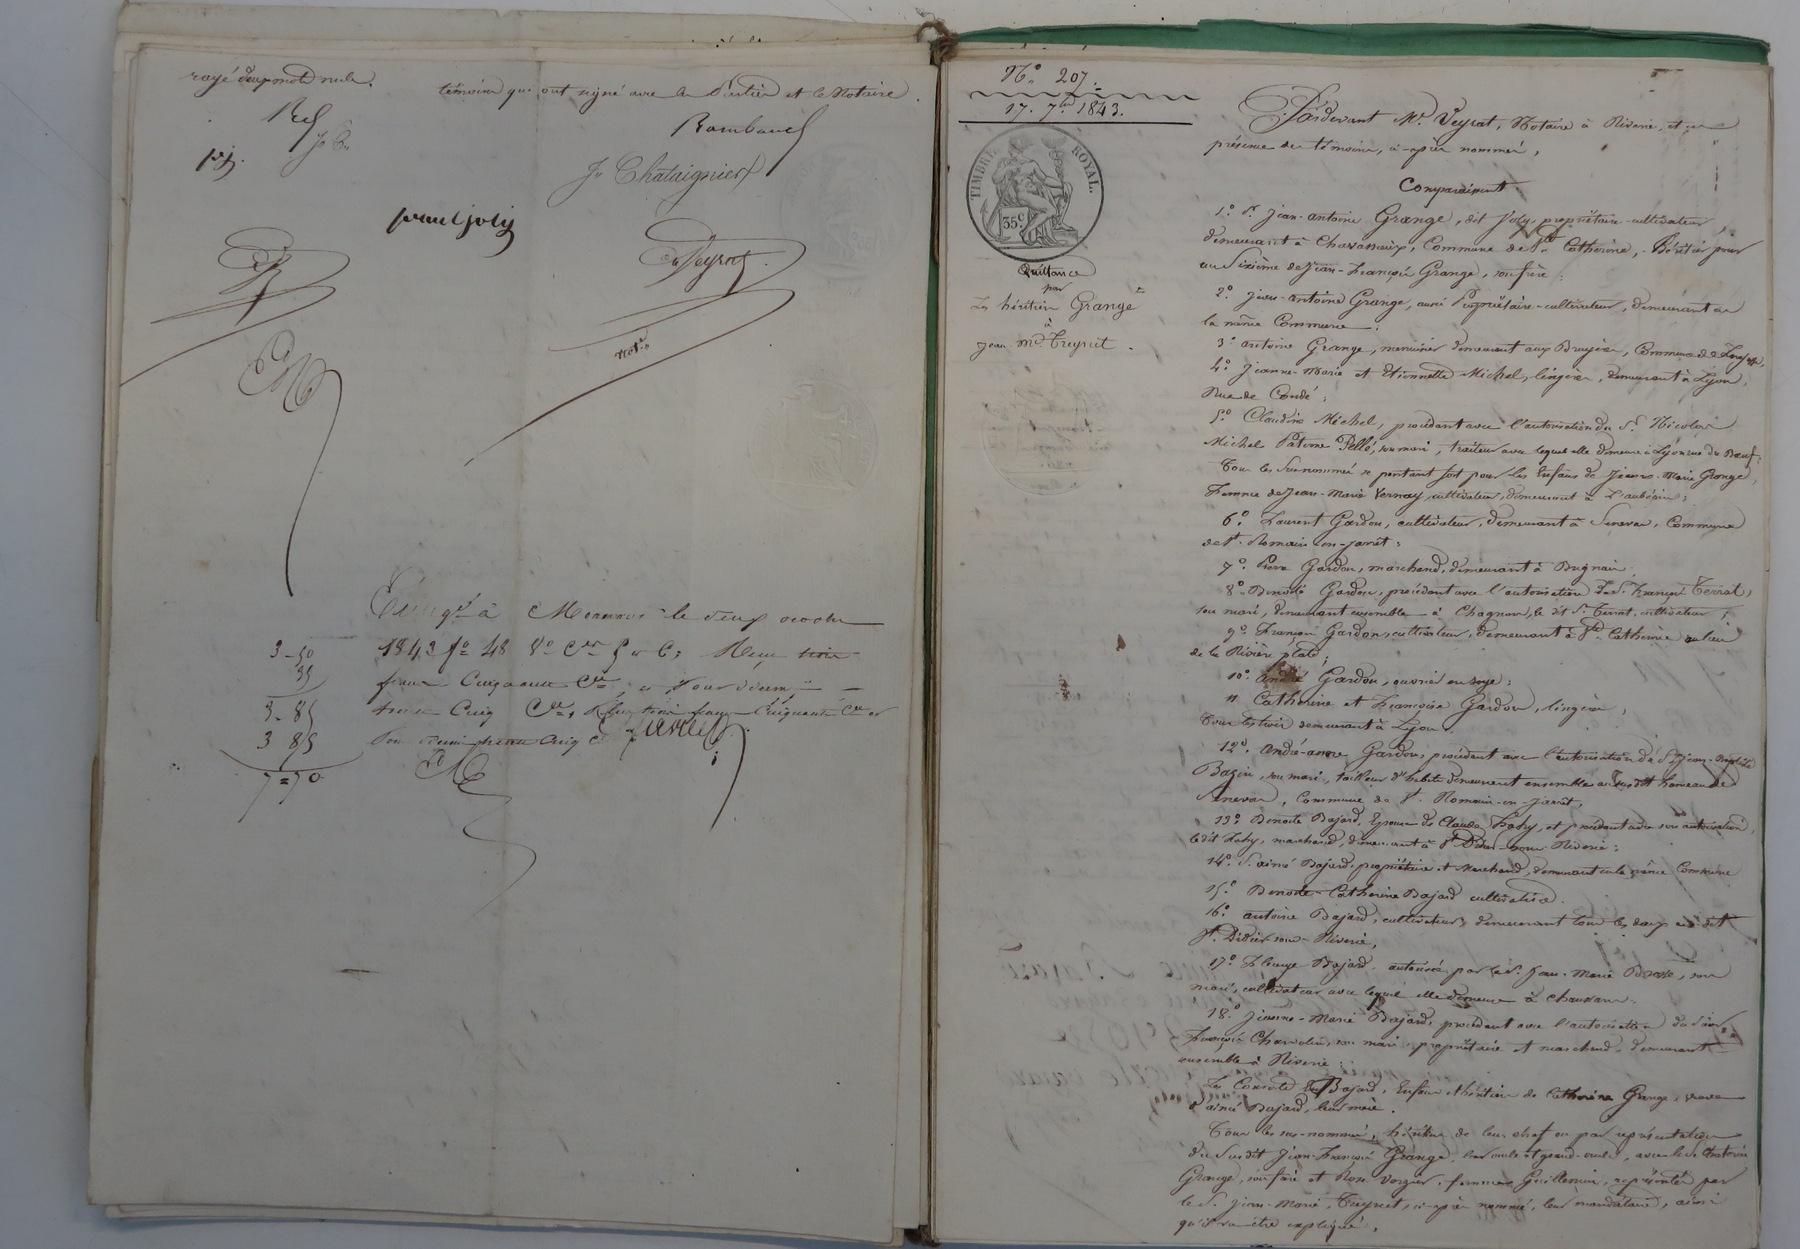 rayé deux mots nuls.
témoins qui ont signé avec les Parties et le Notaire.
Rambaud
Jh Chataignier
paul joly
Veyrat
Not.re
Enreg.é à Mornant le deux octobre
1843 f.o 48 V.o C.es 5 et 6; Reçu trois
francs Cinquante C.es, et pour décime
trente Cinq C.es,
3-50
35
3-85
3 85
7=70
N.o 207.
17. 7.bre 1843.
TIMBRE ROYAL.
35c
Quittance
par
Les héritiers Grange
à
Jean-M.ie Treynet.
Pardevant M.e Veyrat, Notaire à Riverie, et en
présence des témoins, ci-après nommés,
Comparaissent
1.o S. Jean-antoine Grange, dit Joly, propriétaire-cultivateur,
demeurant à Chavassieux, Commune de S.te Catherine, héritier pour
un Sixième de Jean-François Grange, son frère;
2.o Jean-antoine Grange, aussi Propriétaire-cultivateur, demeurant en
la même Commune;
3.o antoine Grange, menuisier demeurant aux Bruyères, Commune de
4.o Jeanne-Marie et Etiennette Michel, lingères, demeurant à Lyon,
Rue de Condé;
5.o Claudine Michel, procédant avec l'autorisation du S.r Nicolas
Michel Patome Pellé, son mari, traiteur avec lequel elle demeure à Lyon rue du Bœuf;
Tous les Susnommés se portant fort pour les Enfans de Jeanne-Marie Grange,
Femme de Jean-Marie Vernay, cultivateur, demeurant à L'aubépin;
6.o Laurent Gardon, cultivateur, demeurant à Senevas, Commune
de S.t Romain-en-jarret;
7.o Pierre Gardon, marchand, demeurant à Brignais;
8.o Benoîte Gardon, procédant avec l'autorisation de S. François Terrat,
son mari, demeurant ensemble à Chagnon, le dit S.r Terrat, cultivateur;
9.o François Gardon, cultivateur, demeurant à S.te Catherine au lieu
de la Rivière plate;
10.o André Gardon, ouvrier en soye;
11 Catherine et Françoise Gardon, lingères,
Tous les trois demeurant à Lyon.
12.o andré-anne Gardon, procédant avec l'autorisation de S. Jean-Bapt.te
Bazin, son mari, tailleur d'habits demeurant ensemble au susdit hameau de
Senevas, Commune de S.t Romain-en-jarret,
13.o Benoite Bajard, Epouse de Claude, et procédant avec son autorisation,
ledit, marchand, demeurant à S.t Didier-sous-Riverie;
14.o S. aimé Bajard, propriétaire et Marchand, demeurant en la même Commune
15.o Benoite-Catherine Bajard cultivatrice.
16.o antoine Bajard, cultivateur, demeurant tous les deux au dit
S.t Didier-sous-Riverie,
17.o Bajard, autorisée par le S. Jean-Marie, son
mari, cultivateur avec lequel elle demeure à Chaussan;
18.o Jeanne-Marie Bajard, procédant avec l'autorisation du Sieur
François, son mari, propriétaire et marchand, demeurant
ensemble à Riverie;
Les Bajard, Enfans et héritiers de Catherine Grange, veuve
d'aimé Bajard, leur mère.
Tous les sus-nommés, héritiers de leur chef ou par représentation
du Susdit Jean-François Grange, leur oncle et grand-oncle, avec le S. antoine
Grange, son frère et, femme Guillermin, représentés par
le S. Jean-Marie Treynet, ci-après nommé, leur mandataire, ainsi
qu'il va être expliqué,